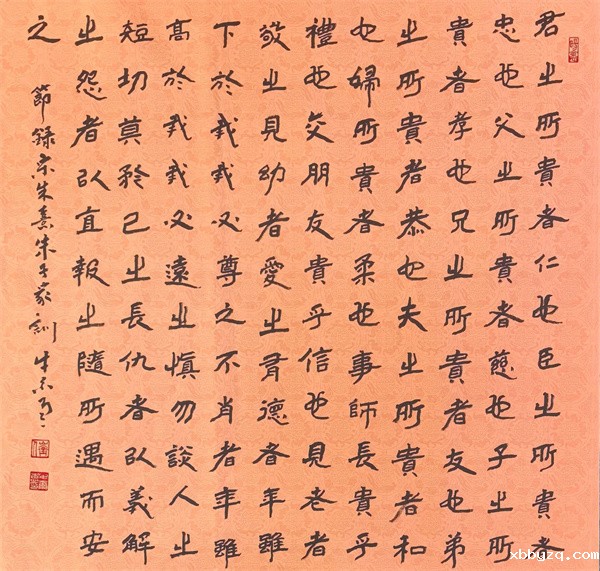 君之所貴者仁也臣之所貴者
忠也父之所貴者慈也子之所
貴者孝也兄之所貴者友也弟
之所貴者恭也夫之所貴者和
也婦所貴者柔也事師長貴乎
禮也交朋友貴乎信也見老者
敬之見幼者愛之有德者年雖
下於我我必尊之不肖者年雖
高於我我必遠之慎勿談人之
短切莫矜己之長仇者以義解
之怨者以直報之隨所遇而安
之
節録宋朱熹朱子家訓
xbbyzq.com